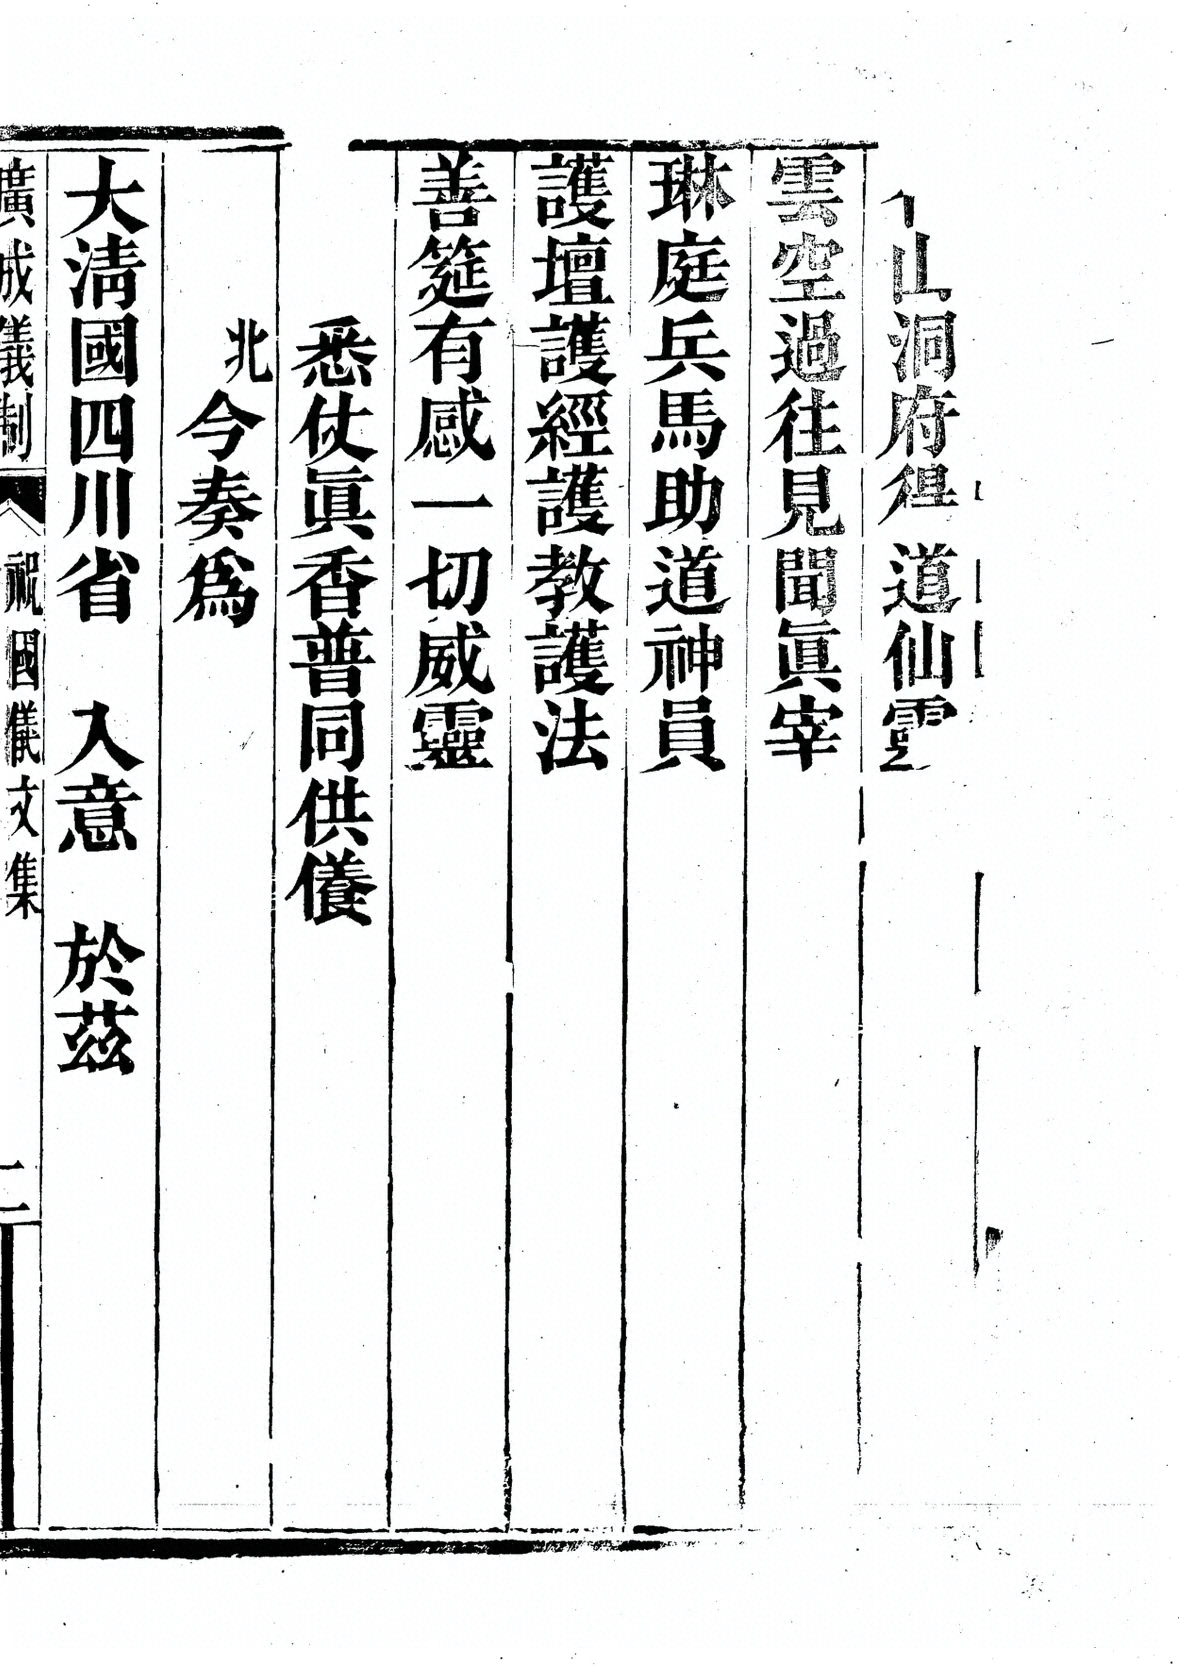 山洞府得道仙靈
雲空過往見聞眞宰
琳庭兵馬助道神員
護壇護經護教護法
善筵有感一切威靈
悉仗眞香普同供養
北
今奏爲
大清國四川省　入意　於茲
廣成儀制　祝國儀文集　二